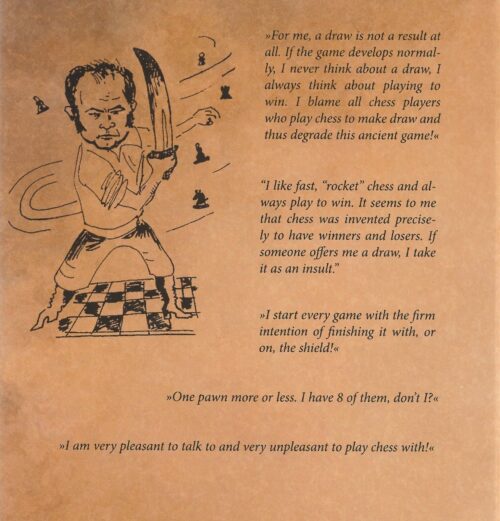 »For me, a draw is not a result at
all. If the game develops normal-
ly, I never think about a draw, I
always think about playing to
win. I blame all chess players
who play chess to make draw and
thus degrade this ancient game!«
“I like fast, “rocket” chess and al-
ways play to win. It seems to me
that chess was invented precise-
ly to have winners and losers. If
someone offers me a draw, I take
it as an insult.”
»I start every game with the firm
intention of finishing it with, or
on, the shield!«
»One pawn more or less. I have 8 of them, don’t I?«
»I am very pleasant to talk to and very unpleasant to play chess with!«